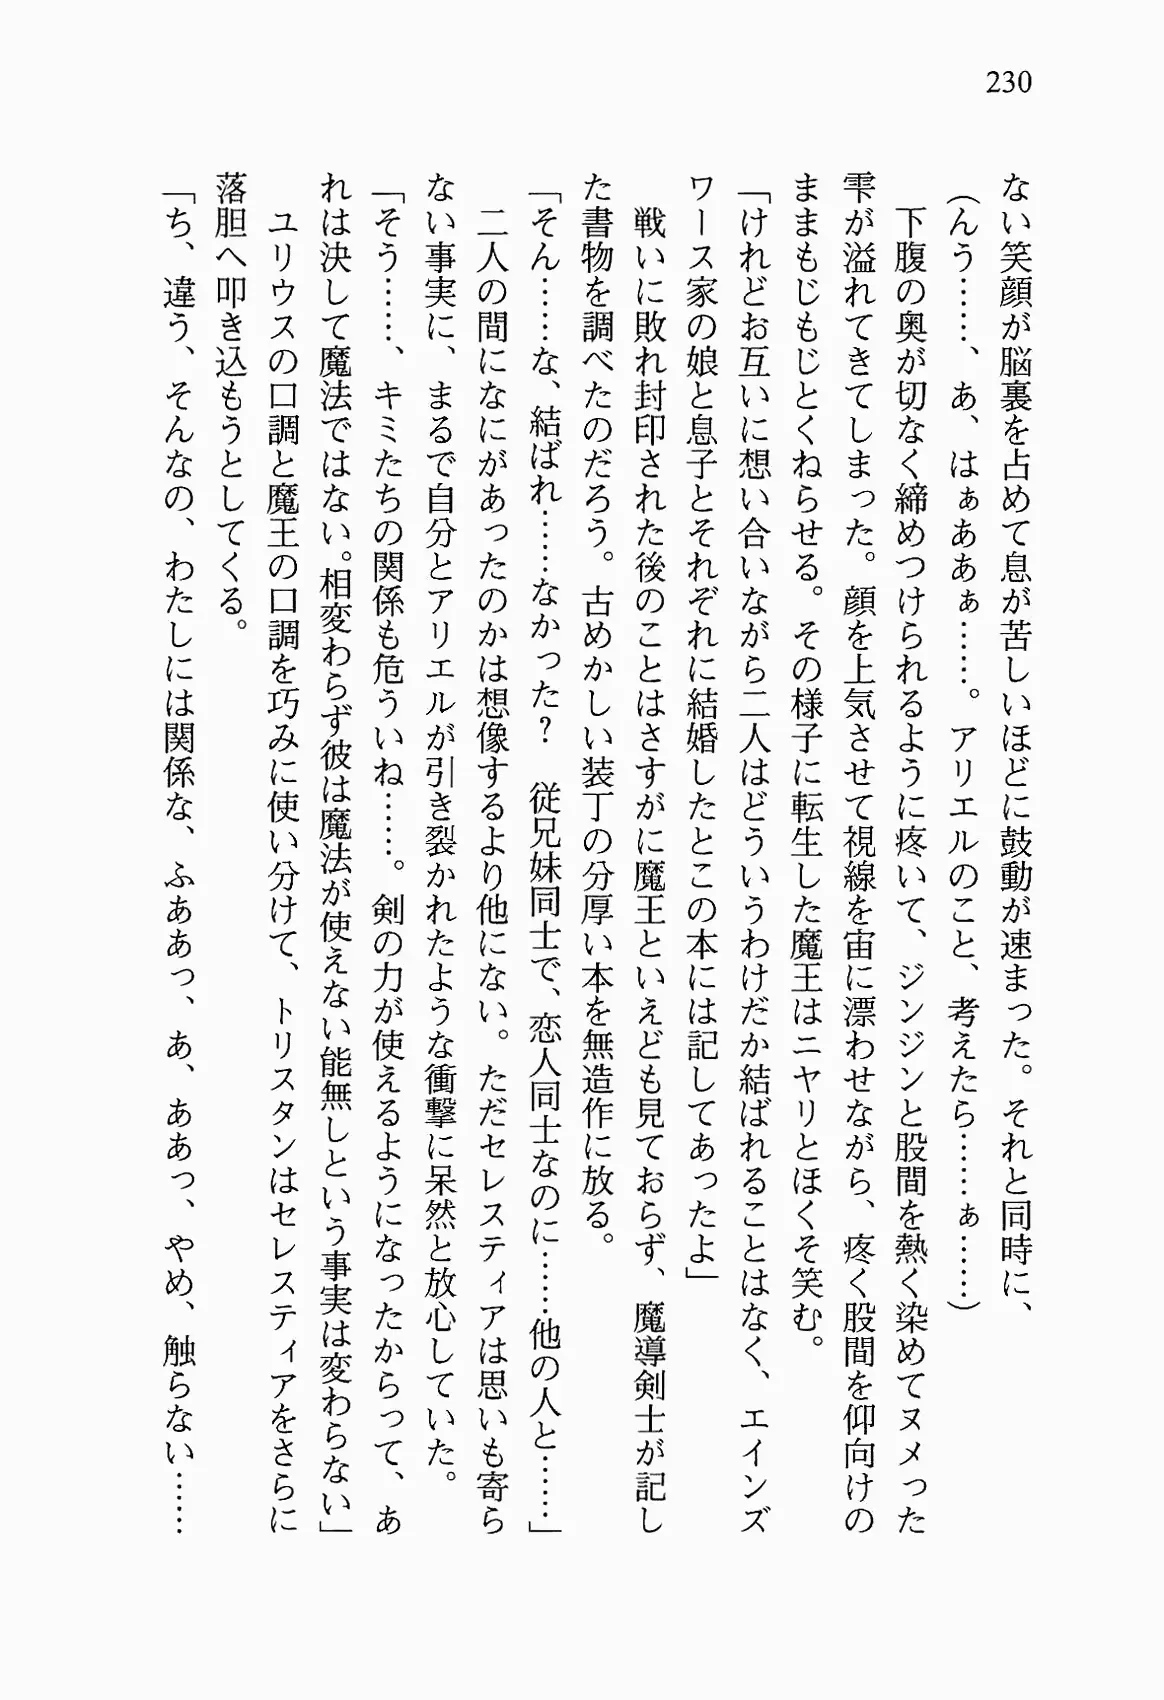 230
ない笑顔が脳裏を占めて息が苦しいほどに鼓動が速まった。それと同時に、
(んう……、あ、はぁああぁ……。アリエルのこと、考えたら……ぁ……)
下腹の奥が切なく締めつけられるように疼いて、ジンジンと股間を熱く染めてヌメった
雫が溢れてきてしまった。顔を上気させて視線を宙に漂わせながら、疼く股間を仰向けの
ままもじもじとくねらせる。その様子に転生した魔王はニヤリとほくそ笑む。
「けれどお互いに想い合いながら二人はどういうわけだか結ばれることはなく、エインズ
ワース家の娘と息子とそれぞれに結婚したとこの本には記してあったよ」
戦いに敗れ封印された後のことはさすがに魔王といえども見ておらず、魔導剣士が記し
た書物を調べたのだろう。古めかしい装丁の分厚い本を無造作に放る。
「そん……な、結ばれ……なかった?　従兄妹同士で、恋人同士なのに……他の人と……」
二人の間になにがあったのかは想像するより他にない。ただセレスティアは思いも寄ら
ない事実に、まるで自分とアリエルが引き裂かれたような衝撃に呆然と放心していた。
「そう……、キミたちの関係も危ういね……。剣の力が使えるようになったからって、あ
れは決して魔法ではない。相変わらず彼は魔法が使えない能無しという事実は変わらない」
ユリウスの口調と魔王の口調を巧みに使い分けて、トリスタンはセレスティアをさらに
落胆へ叩き込もうとしてくる。
「ち、違う、そんなの、わたしには関係な、ふああっ、あ、ああっ、やめ、触らない……